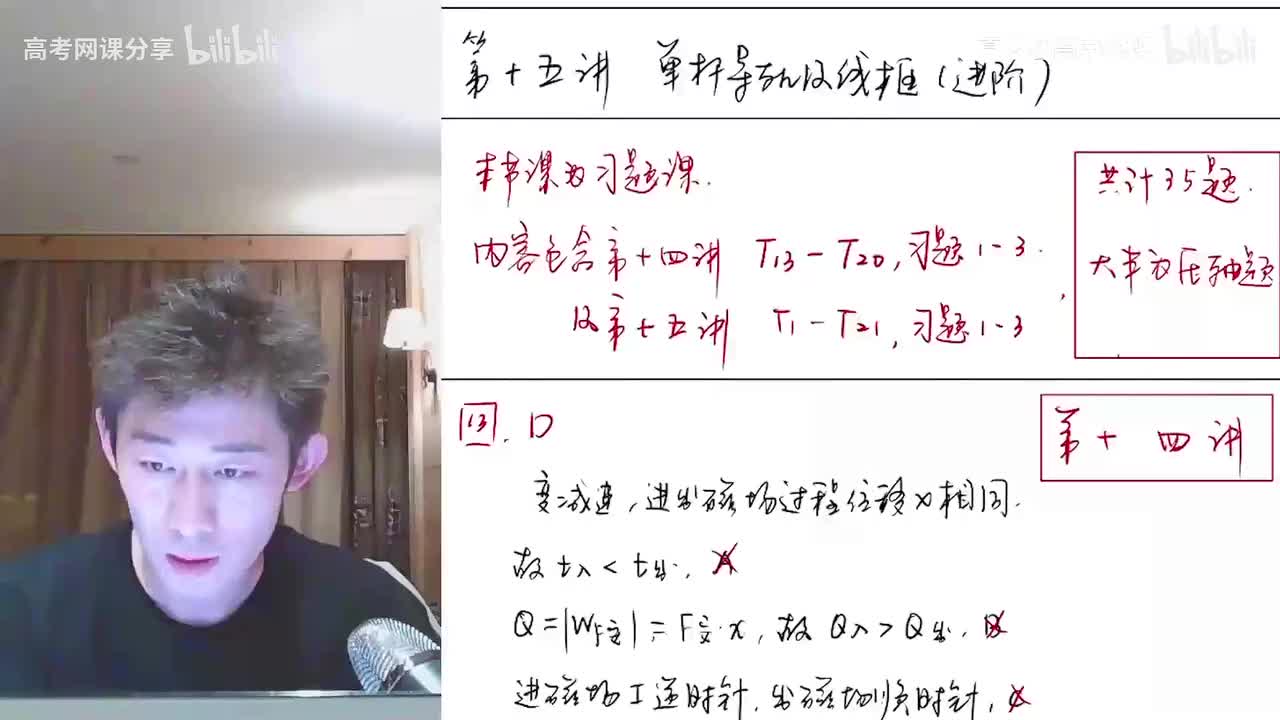 高考网课分享 bilibili
bilibili
第十五讲 单杆导轨及线框(进阶)
本节课为习题课.
内容包含第十四讲 T13-T20,习题1-3.
及第十五讲 T1-T21,习题1-3,
共计35题.
大半为压轴题
第十四讲
13. D
变减速,进出磁场过程位移x相同.
故t入<t出. A
Q=|WF安|=F安·x,故Q入>Q出. B
进磁场I逆时针,出磁场I顺时针, C